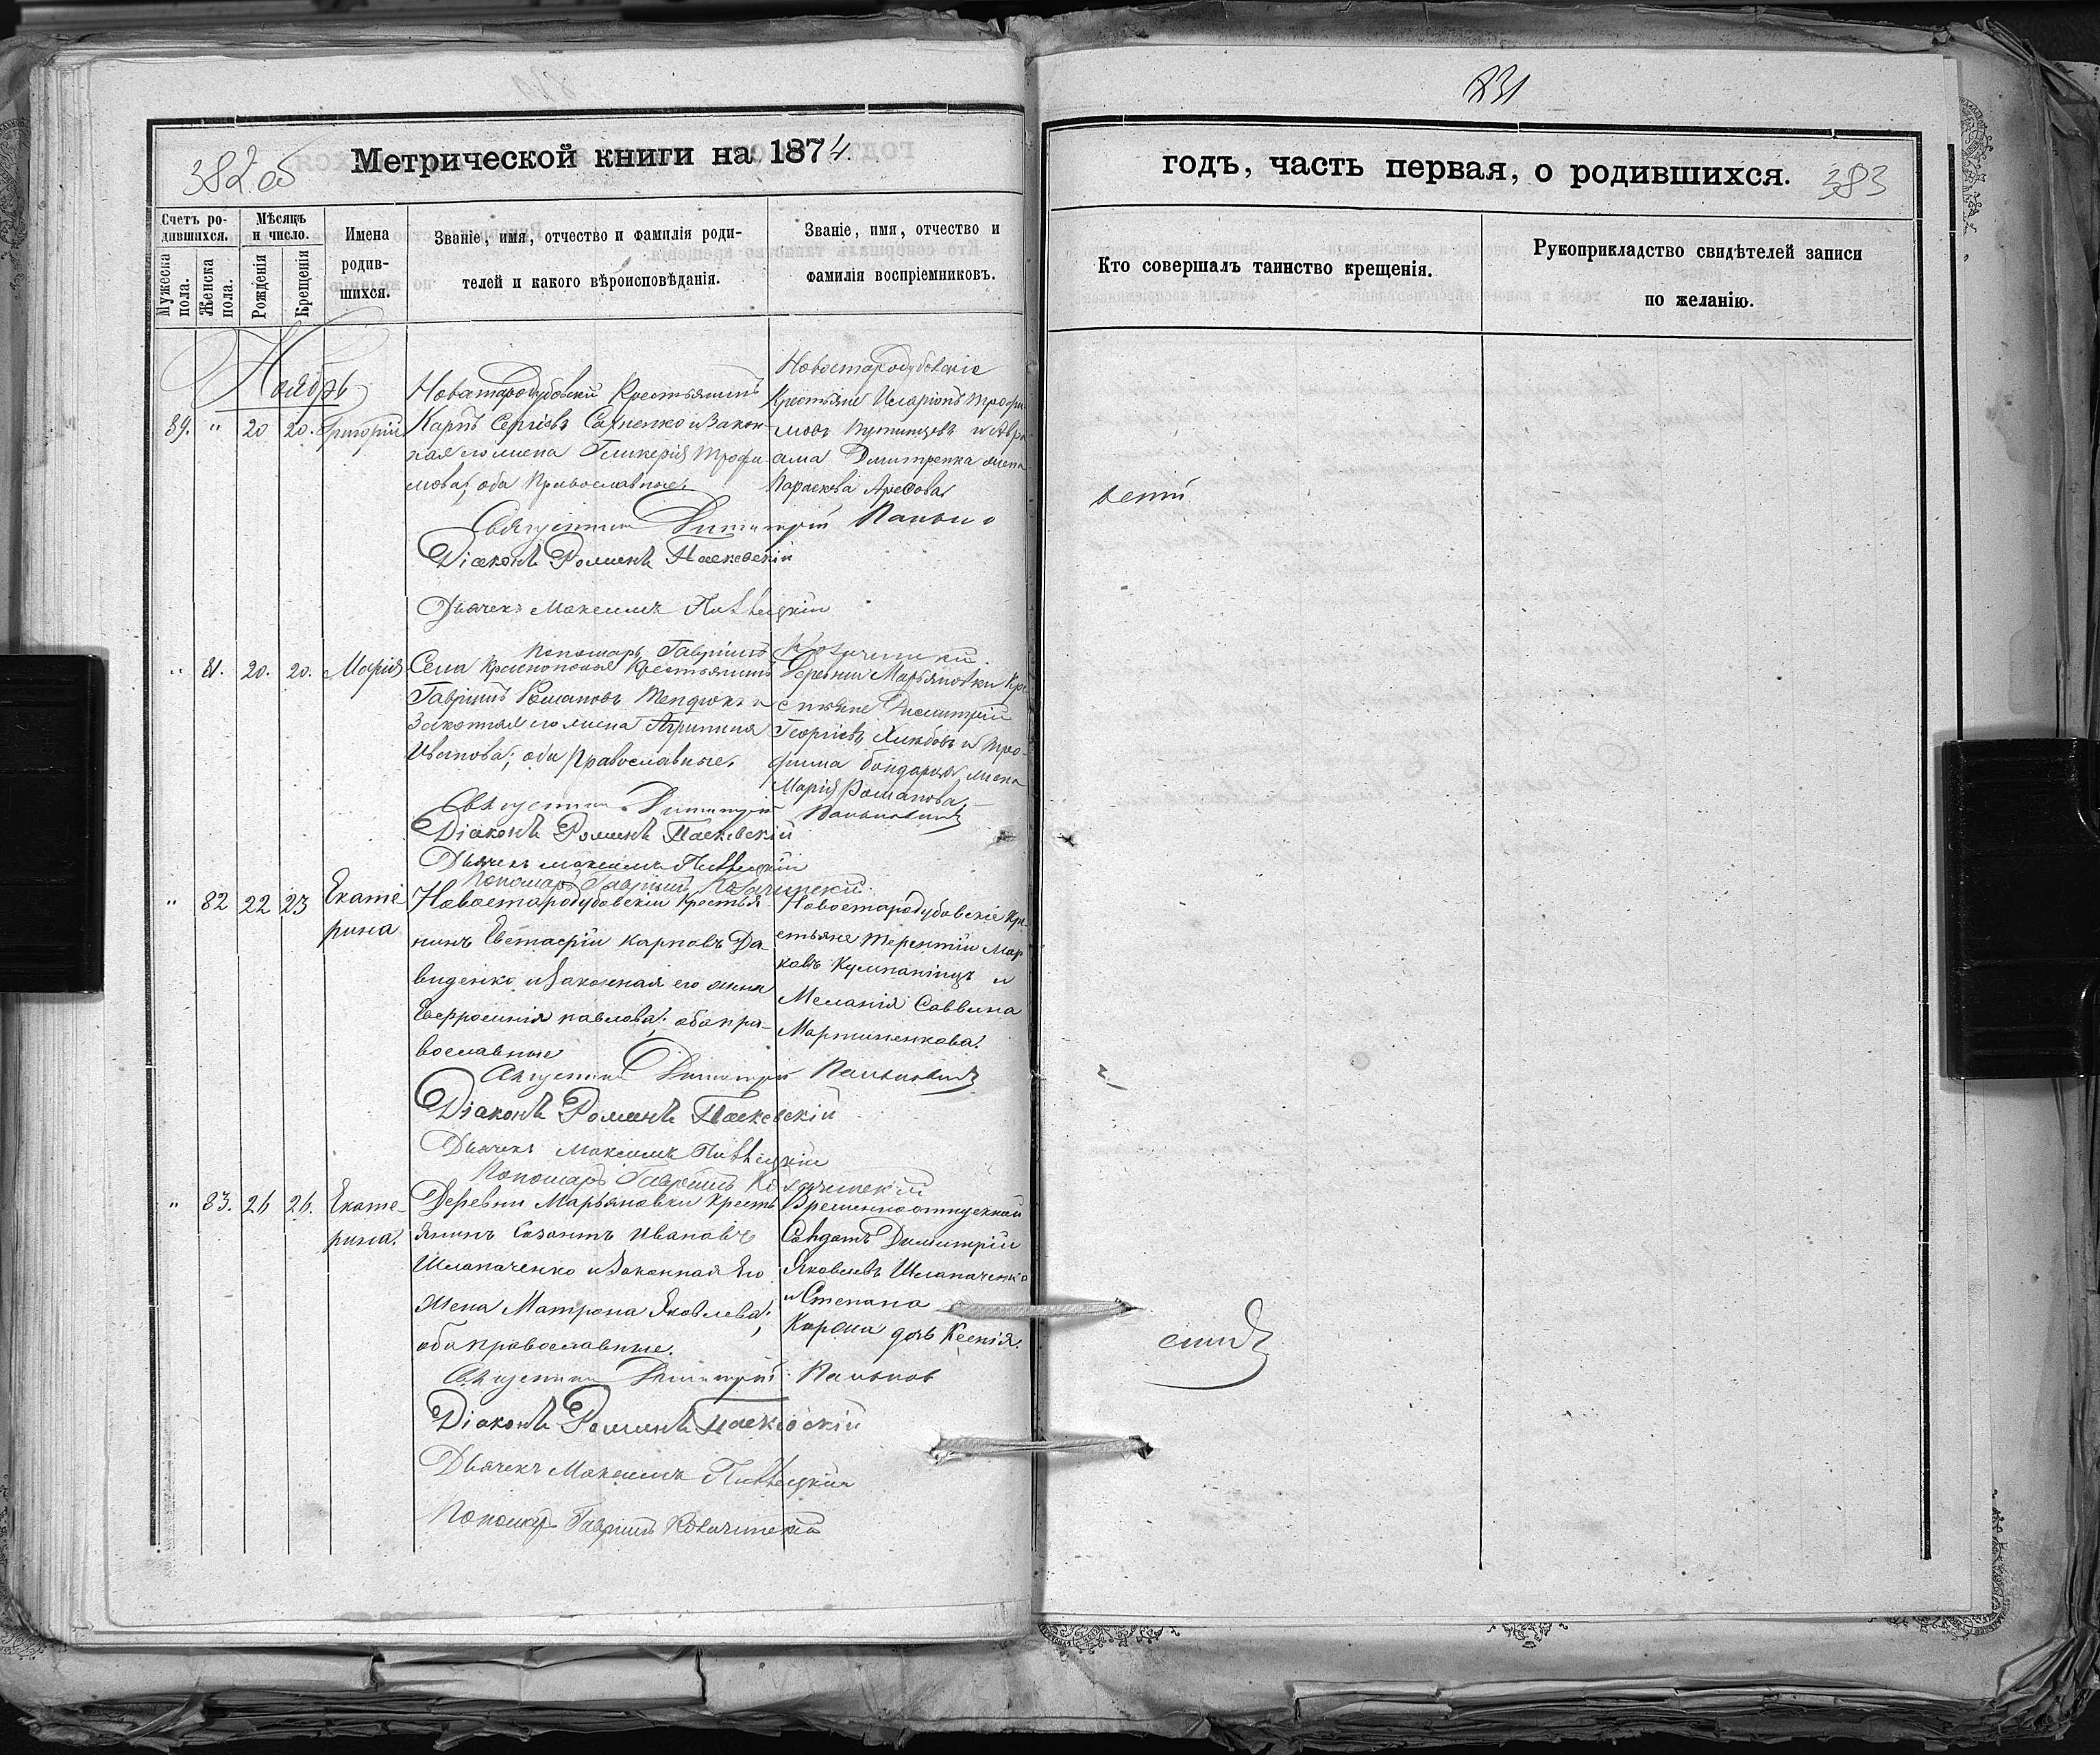 831
382 об
Метрической книги на 1874.
годъ, часть первая, о родившихся.
383
Счетъ родившихся.
Мужеска пола.
Женска пола.
Мѣсяцъ и число.
Рожденія
Крещенія
Имена
родив-
шихся.
Званіе, имя, отчество и фамилія роди-
телей и какого вѣроисповѣданія.
Званіе, имя, отчество и
фамилія воспріемниковъ.
Кто совершалъ таинство крещенія.
Рукоприкладство свидѣтелей записи
по желанію.
Ноябрь
89. " 20 20. Григорій
Новостародубовскій Крестьянинъ
Карпъ Сергіевъ и закон-
ная его жена Гликерія Трофи-
мова; оба Православные.
Новостародубовскіе
Крестьяне Иларіонъ Трофи-
мовъ и Авра-
ама Дмитренка жена
Параскова
Священникъ Димитрій
Діаконъ Романъ Паскевскій
Дьячекъ Максимъ
Пономарь Гавріилъ
" 81. 20. 20. Марія
Села Краснополья Крестьянинъ
Гавріилъ Романовъ и
Законная его жена Агрипина
Иванова; оба Православные.
Деревни Марьяновки Кре-
стьяне Димитрій
Георгіевъ и Тро-
фима Бондаря жена
Марія Романова.
Священникъ Димитрій
Діаконъ Романъ Паскевскій
Дьячекъ Максимъ
Пономарь Гавріилъ
" 82 22 23 Екате
рина
Новостародубовскій Крестья
нинъ Евстафій Карповъ Да-
виденко и Законная его жена
Евфросинія Павлова; оба пра-
вославные
Новостародубовскіе Кре-
стьяне Терентій Мар
ковъ и
Меланія Саввина
Мартиненкова.
Священникъ Димитрій
Діаконъ Романъ Паскевскій
Дьячекъ Максимъ
Пономарь Гавріилъ
" 83. 26 26. Екате-
рина.
Деревни Марьяновки Кресть
янинъ Созонтъ Ивановъ
Шлапаченко и Законная Его
Жена Матрона Яковлева;
оба православные.
Временноотпускной
Солдатъ Димитрій
Яковлевъ Шлапаченко
и Степана
дочь Ксенія.
Священникъ Димитрій
Діаконъ Романъ Паскевскій
Дьячекъ Максимъ
Пономарь Гавріилъ